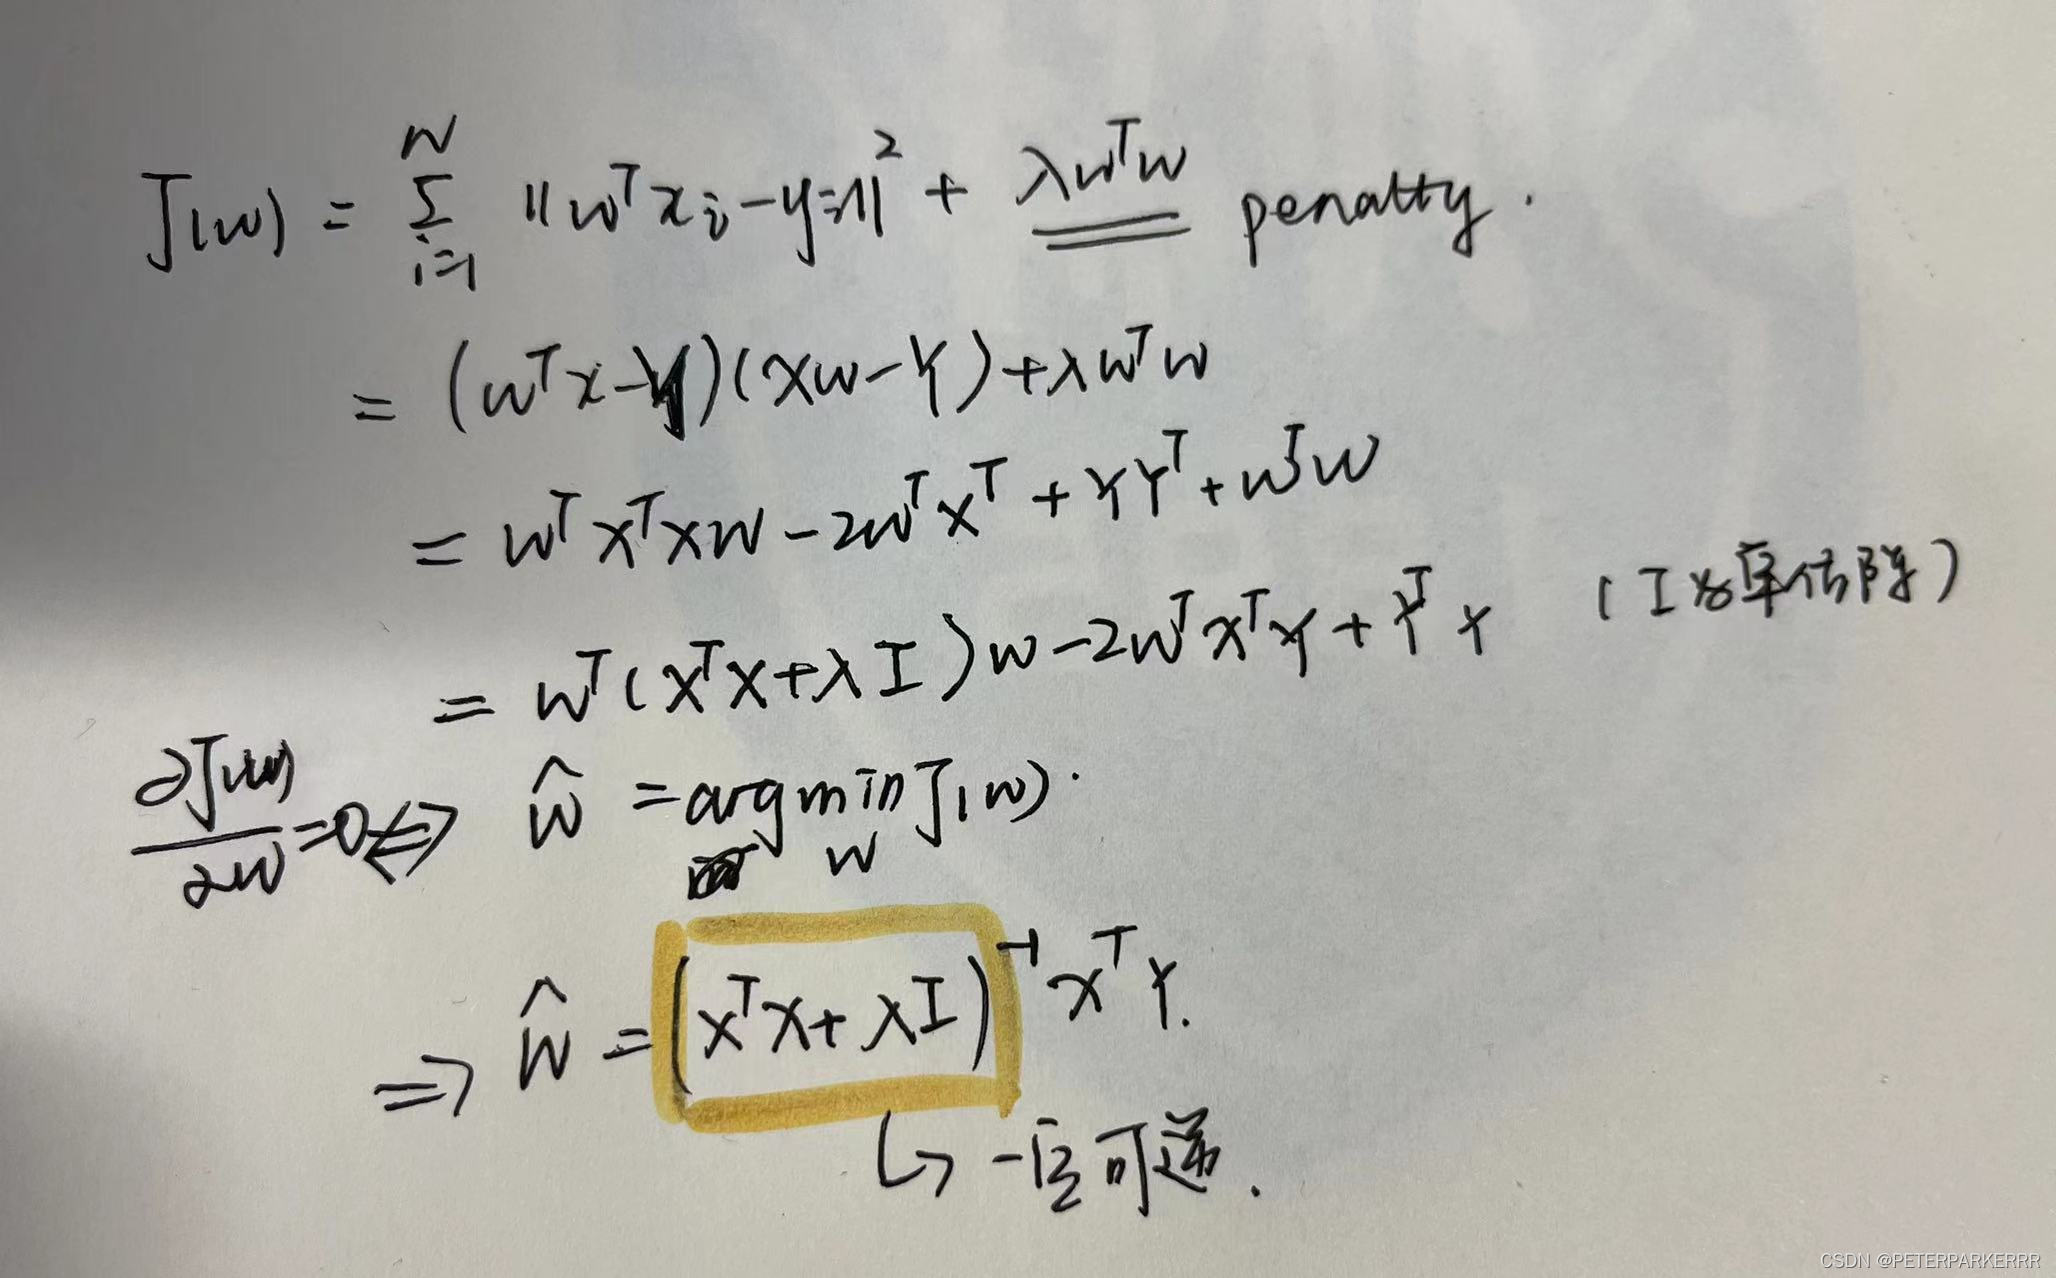 J(w) = Σ_{i=1}^{N} ||w^T x_i - y_i||^2 + λw^T w penalty.
= (w^T x - Y)(Xw - Y) + λw^T w
= w^T X^T X w - 2w^T X^T + Y Y^T + w^T w
= w^T (X^T X + λ I) w - 2w^T X^T Y + Y^T Y (I为单位阵)
∂J(w)/∂w = 0 ⟺ ŵ = argmin_w J(w).
⇒ ŵ = (X^T X + λI)^{-1} X^T Y.
↳ 一定可逆.
CSDN @PETERPARKERRR